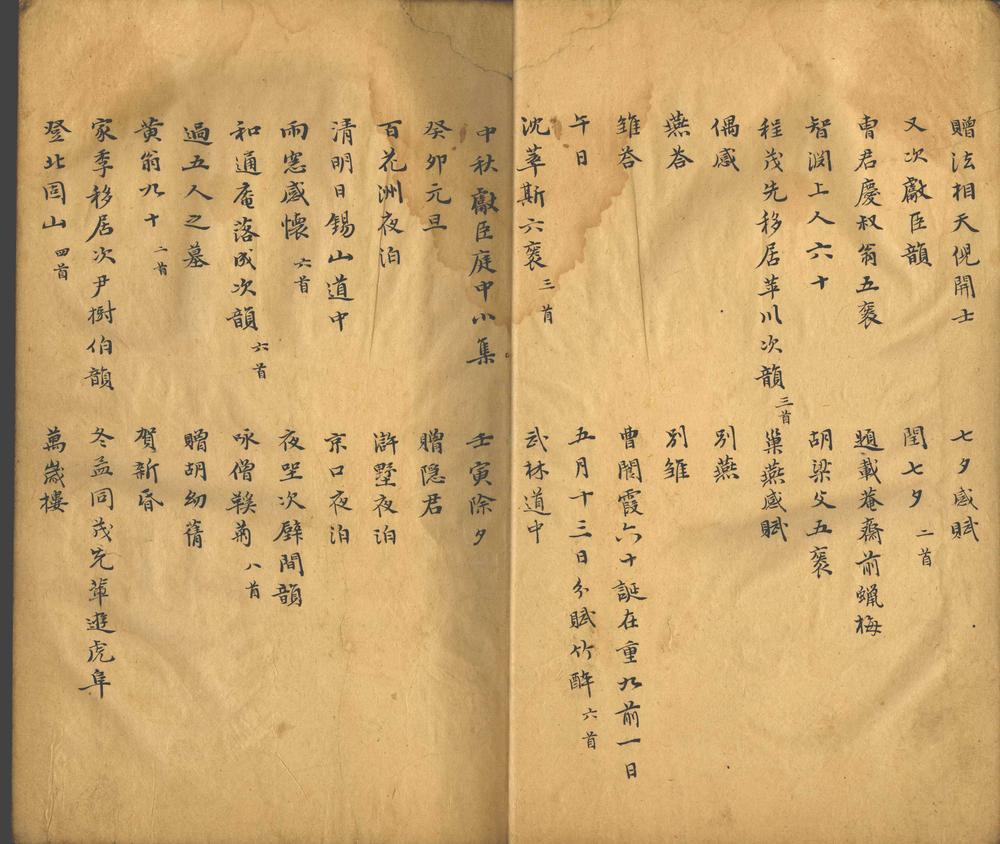 贈法相天倪開士　七夕感賦
又次獻臣韻　閏七夕二首
曹君慶叔翁五袠　題載菴齋前蠟梅
智淵上人六十　胡梁父五袠
程茂先移居苹川次韻三首　巢燕感賦
偶感　別燕
燕荅　別雏
雏荅　曹閬霞六十誕在重九前一日
午日　五月十三日分賦竹醉六首
沈萃斯六袠三首　武林道中
中秋獻臣庭中小集　壬寅除夕
癸卯元旦　贈隐君
百花洲夜泊　滸墅夜泊
清明日錫山道中　京口夜泊
雨窓感懷六首　夜坐次壁間韻
和通菴落成次韻六首　咏僧鞵菊八首
過五人之墓　贈胡幼蒨
黄翁九十二首　賀新昏
家季移居次尹樹伯韻　冬孟同茂先輩遊虎阜
登北固山四首　萬歲樓